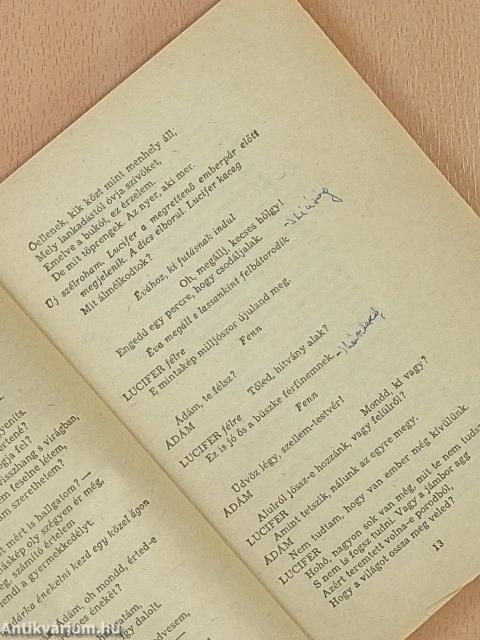 Óellenek, kik közt mint menhely áll,
Mely lankadástól óvja szívöket,
Emelve a bukót, ez érzelem.
De mit töprengek. Az nyer, aki mer.
Új szélroham. Lucifer a megrettenő emberpár előtt
megjelenik. A dics elborul. Lucifer kacag
Mit álmélkodtok?
Évához, ki futásnak indul
Oh, megállj, kecses hölgy!
Engedd egy percre, hogy csodáljalak.
Éva megáll s lassankint felbátorodik
LUCIFER félre
E mintakép milljószor újuland meg.
Fenn
Ádám, te félsz?
ÁDÁM
Tőled, hitvány alak?
LUCIFER félre
Ez is jó ős a büszke férfinemnek.
Fenn
Üdvöz légy, szellem-testvér!
ÁDÁM
Mondd, ki vagy?
Alulról jössz-e hozzánk, vagy felülről?
LUCIFER
Amint tetszik, nálunk az egyre megy.
ÁDÁM
Nem tudtam, hogy van ember még kívülünk.
LUCIFER
Hohó, nagyon sok van még, mit te nem tudsz
S nem is fogsz tudni. Vagy a jámbor agg
Azért teremtett volna-e porodból,
Hogy a világot ossza meg veled?
13
yenits.
értené?
ogja fel?
visszhang s virágban,
m feselne létem,
m szerethetem?
t mért is hallgatom? —
máskép oly szégyen ér még,
g, számító értelem
lendi a gyermekkedélyt.
dárka énekelni kezd egy közel ágon
Ádám, oh mondd, érted-e
epes éneket?
gatám,
y dalolt.
edvesem,
Antikvárium.hu
Antikvárium.hu